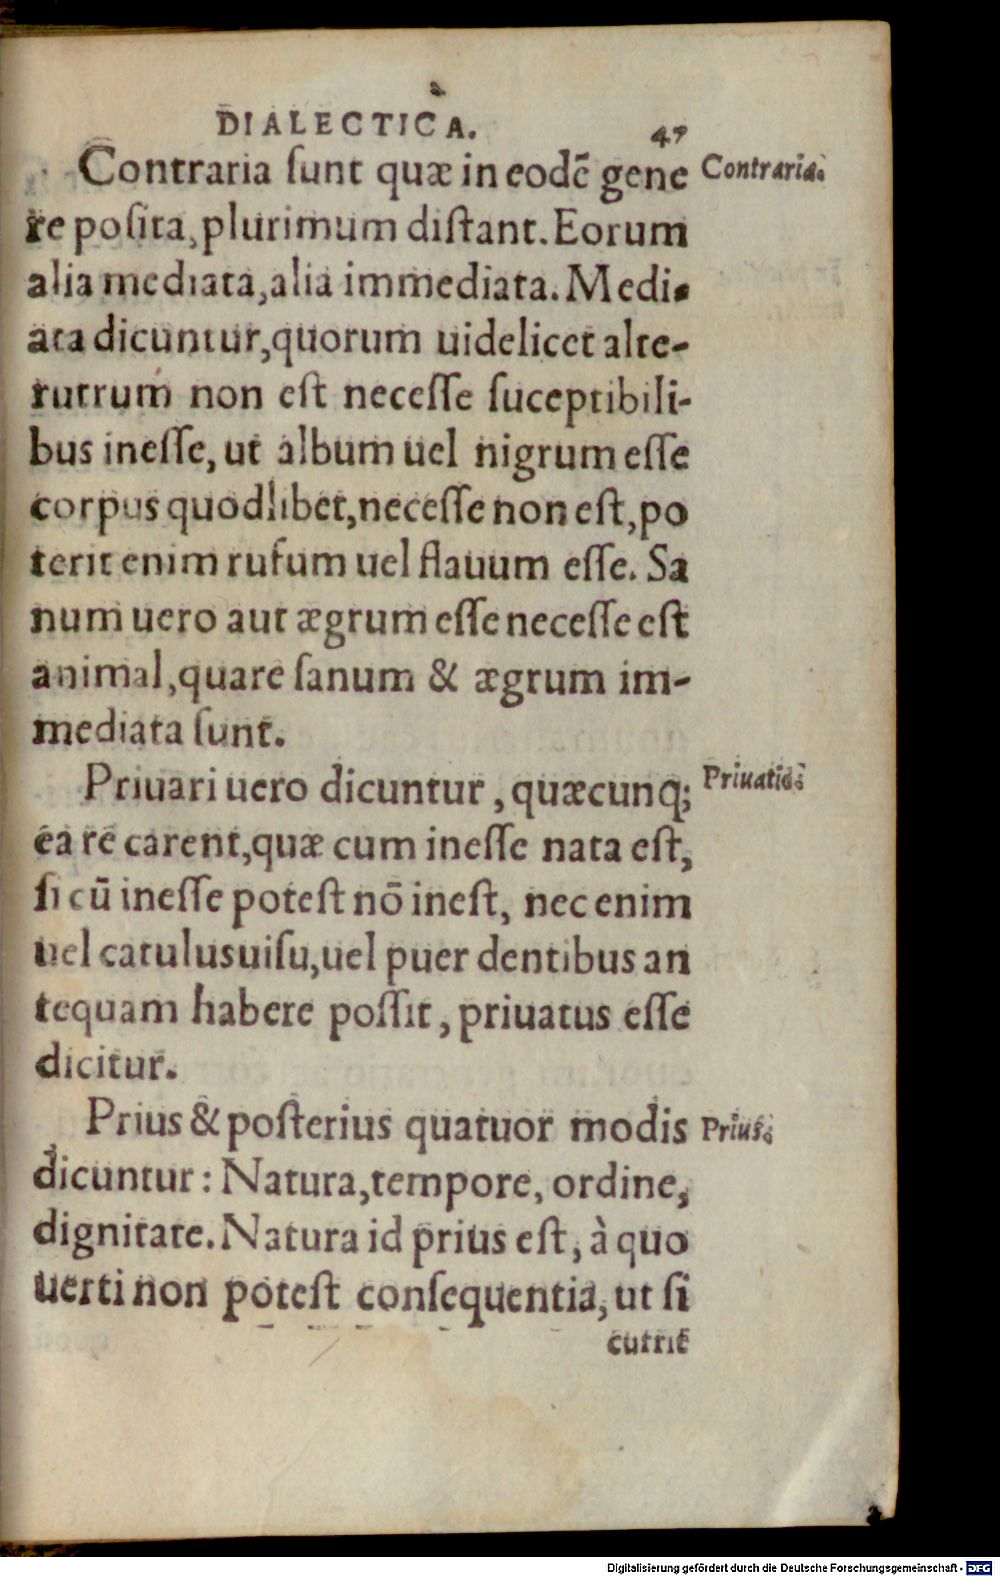 DIALECTICA. 47
Contraria ſunt quæ in eodē gene Contraria.
re poſita, plurimum diſtant. Eorum
alia mediata, alia immediata. Medi-
ata dicuntur, quorum uidelicet alte-
rutrum non eſt neceſſe ſuceptibili-
bus ineſſe, ut album uel nigrum eſſe
corpus quodlibet, neceſſe non eſt, po
terit enim rufum uel flauum eſſe. Sa
num uero aut ægrum eſſe neceſſe eſt
animal, quare ſanum & ægrum im-
mediata ſunt.
Priuari uero dicuntur, quæcunq; Priuatio.
ea re carent, quæ cum ineſſe nata eſt,
ſi cū ineſſe poteſt nō ineſt, nec enim
uel catulus uiſu, uel puer dentibus an
tequam habere poſſit, priuatus eſſe
dicitur.
Prius & poſterius quatuor modis Prius.
dicuntur: Natura, tempore, ordine,
dignitate. Natura id prius eſt, à quo
uerti non poteſt conſequentia, ut ſi
currit
Digitalisierung gefördert durch die Deutsche Forschungsgemeinschaft - DFG